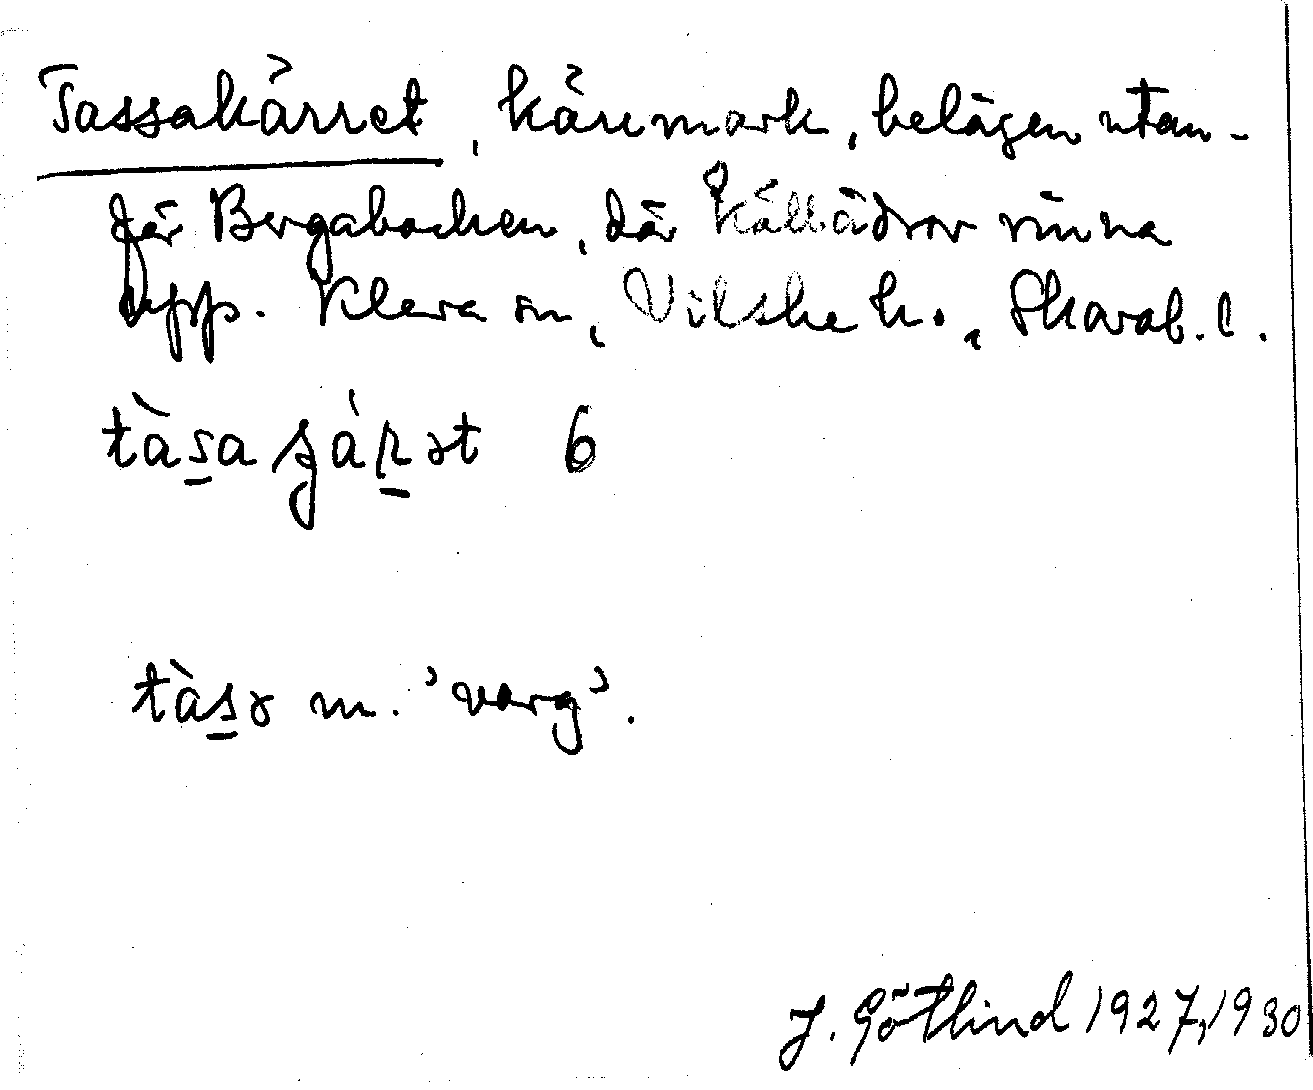 Tassakärret, kärrmark, belägen utan-
för Bergabacken, där källådror rinna
upp. Kleva sn, Vilske h., Skarab. l.
tàs̠a ʂár̠ət 6
tàs̠ə m. 'varg'.
J. Götlind 1927, 1930